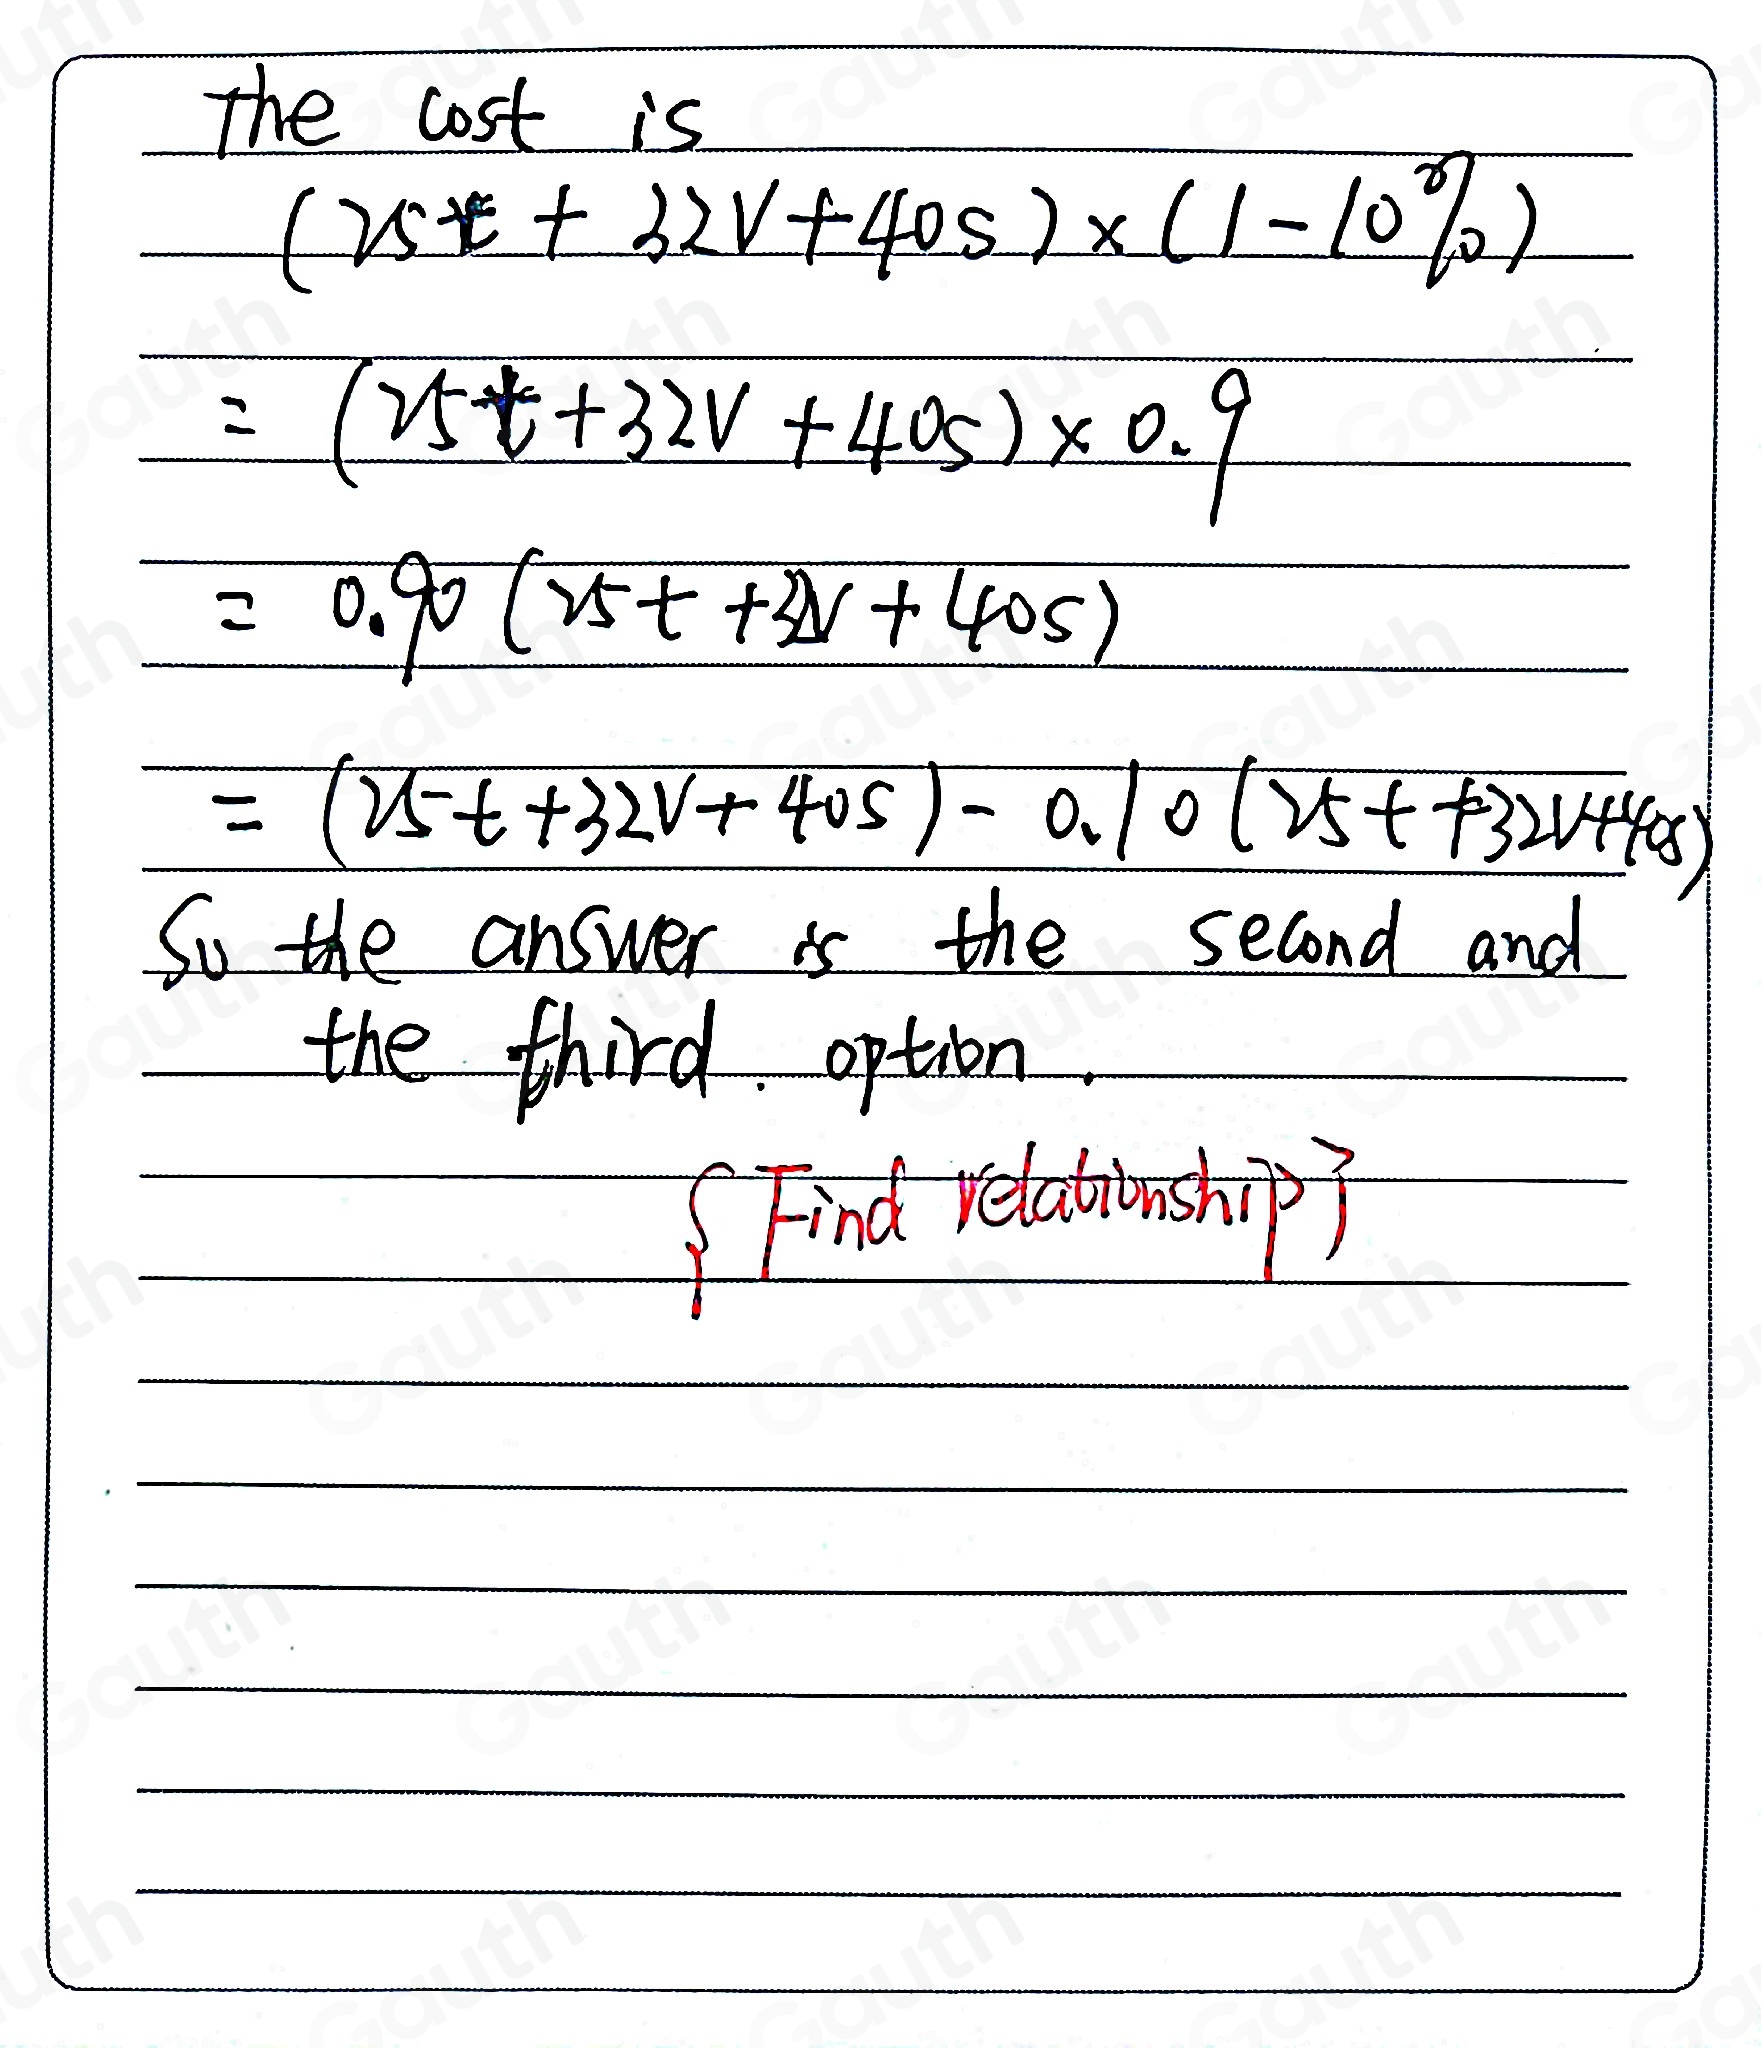 The cost is
(25t + 32V + 40s) × (1 - 10%)
= (25t + 32V + 40s) × 0.9
= 0.90 (25t + 32V + 40s)
= (25t + 32V + 40s) - 0.10 (25t + 32V + 40s)
So the answer is the second and
the third. option.
{Find relationship}